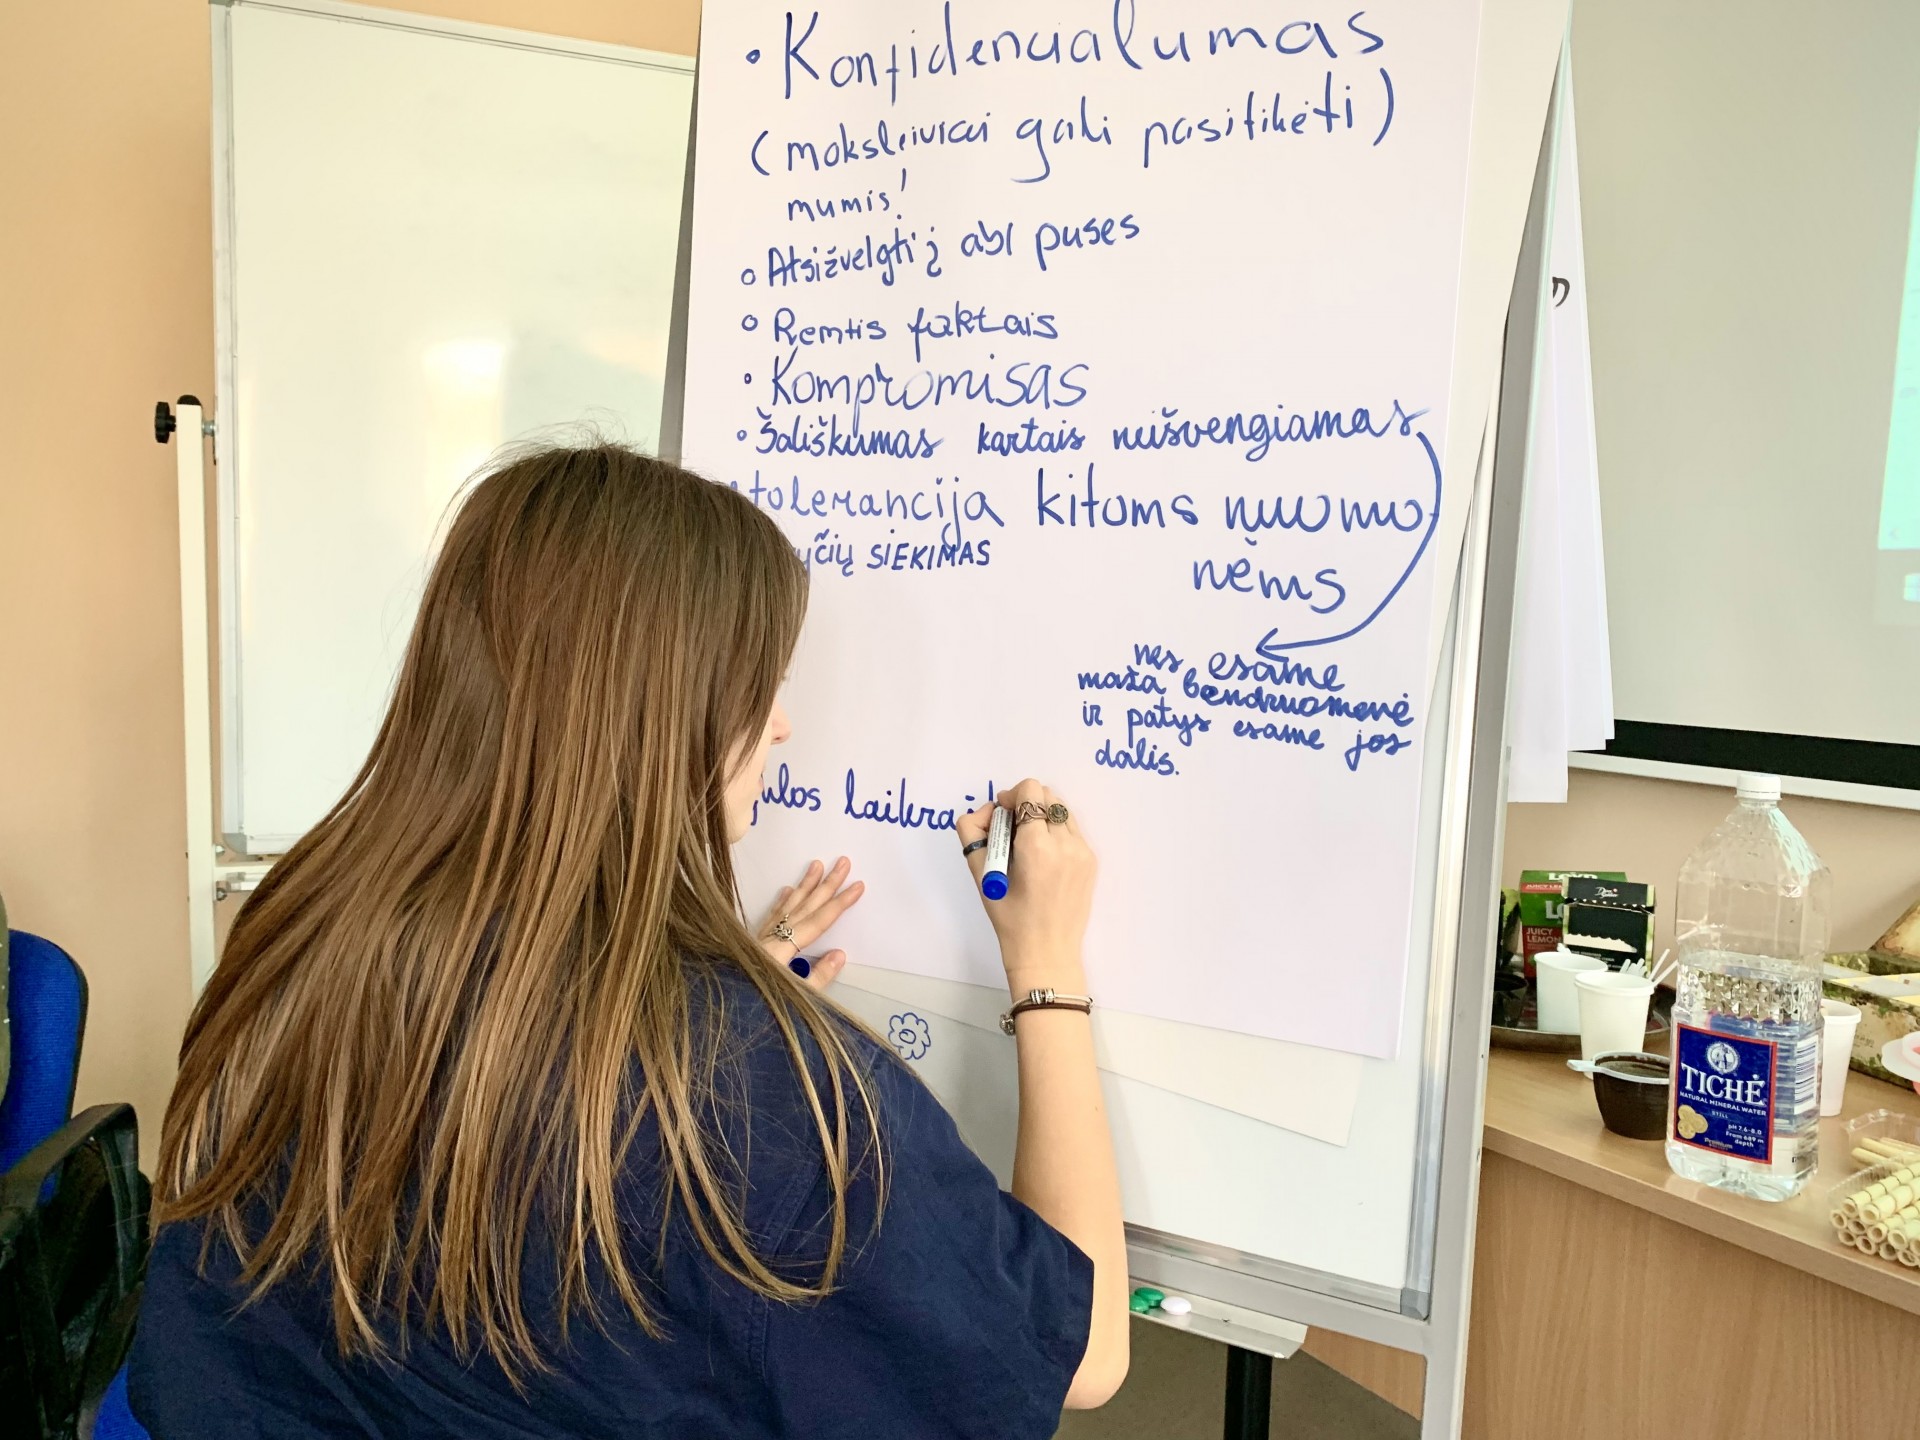 • Konfidencialumas
(moksleiviai gali pasitikėti)
mumis!
◦ Atsižvelgti į abi puses
◦ Remtis faktais
◦ Kompromisas
◦ Šališkumas kartais neišvengiamas
tolerancija kitoms nuomo-
nėms
SIEKIMAS
nes esame
maža bendruomenė
ir patys esame jos
dalis.
LOYD
JUICY LEMON
TICHĖ
NATURAL MINERAL WATER
STILL
pH 7.6-8.0
From 689 m
depth
Premium